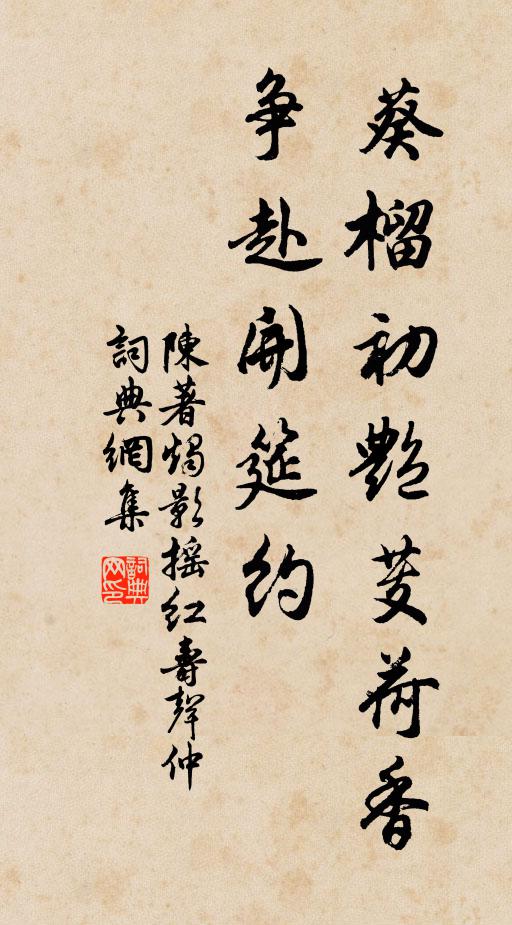 葵榴初艷芰荷香
爭赴開筵約
陳著燭影搖紅壽聲仲
詞典網集
詞典网印